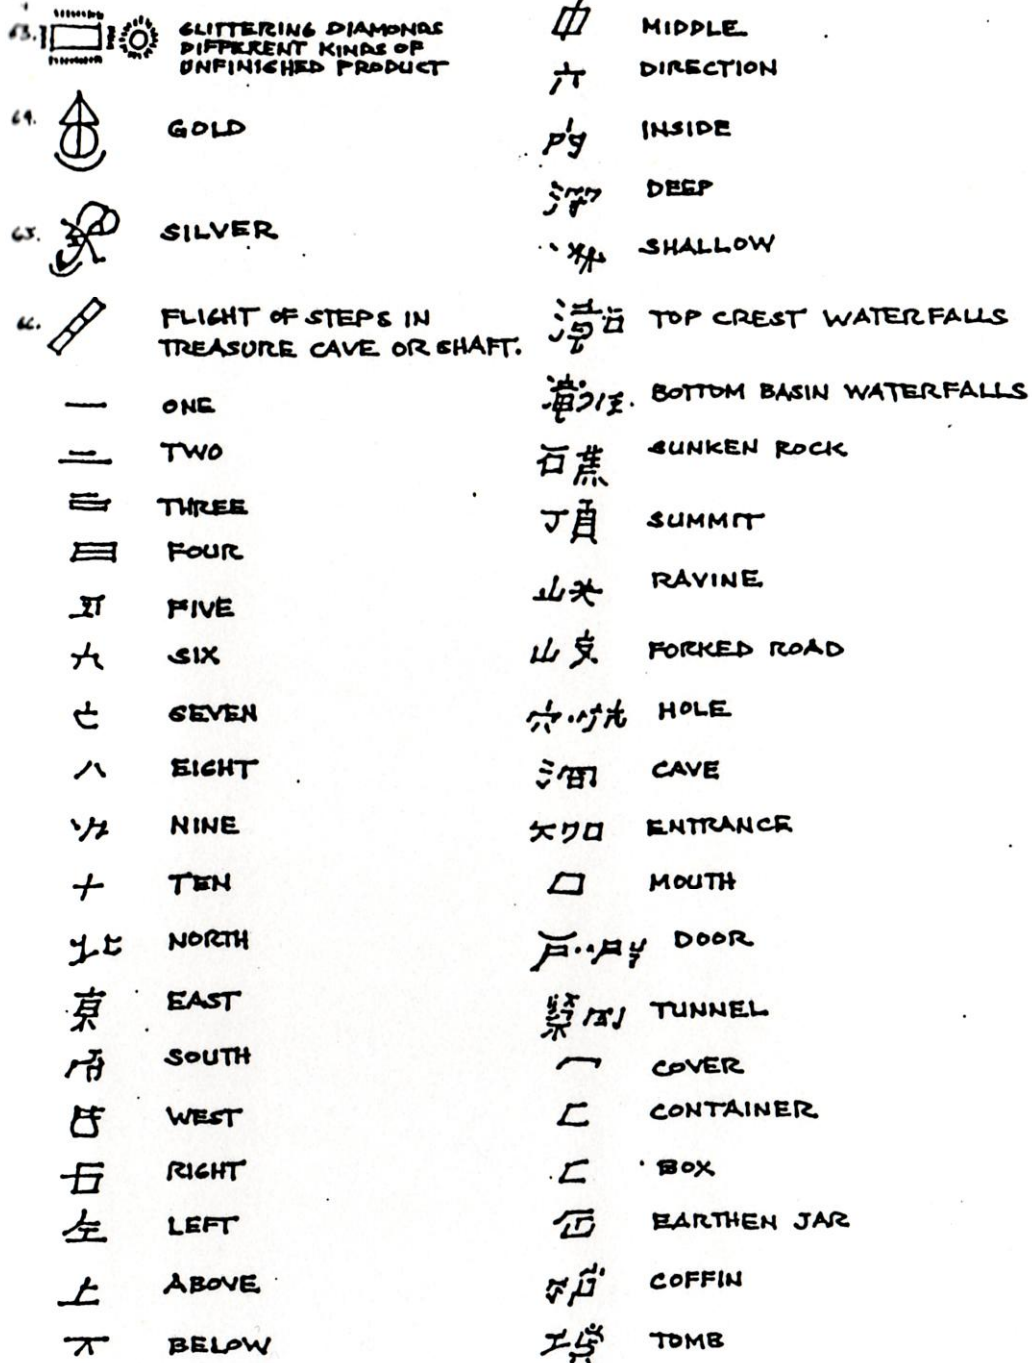 63. GLITTERING DIAMONDS
DIFFERENT KINDS OF
UNFINISHED PRODUCT
64. GOLD
65. SILVER
66. FLIGHT OF STEPS IN
TREASURE CAVE OR SHAFT.
一 ONE
二 TWO
THREE
FOUR
FIVE
六 SIX
SEVEN
八 EIGHT
NINE
十 TEN
北 NORTH
EAST
SOUTH
WEST
RIGHT
左 LEFT
上 ABOVE
BELOW
中 MIDDLE
六 DIRECTION
INSIDE
DEEP
SHALLOW
TOP CREST WATERFALLS
BOTTOM BASIN WATERFALLS
石蕉 SUNKEN ROCK
頂 SUMMIT
RAVINE
FORKED ROAD
HOLE
CAVE
ENTRANCE
口 MOUTH
DOOR
TUNNEL
COVER
匚 CONTAINER
匚 BOX
EARTHEN JAR
COFFIN
TOMB